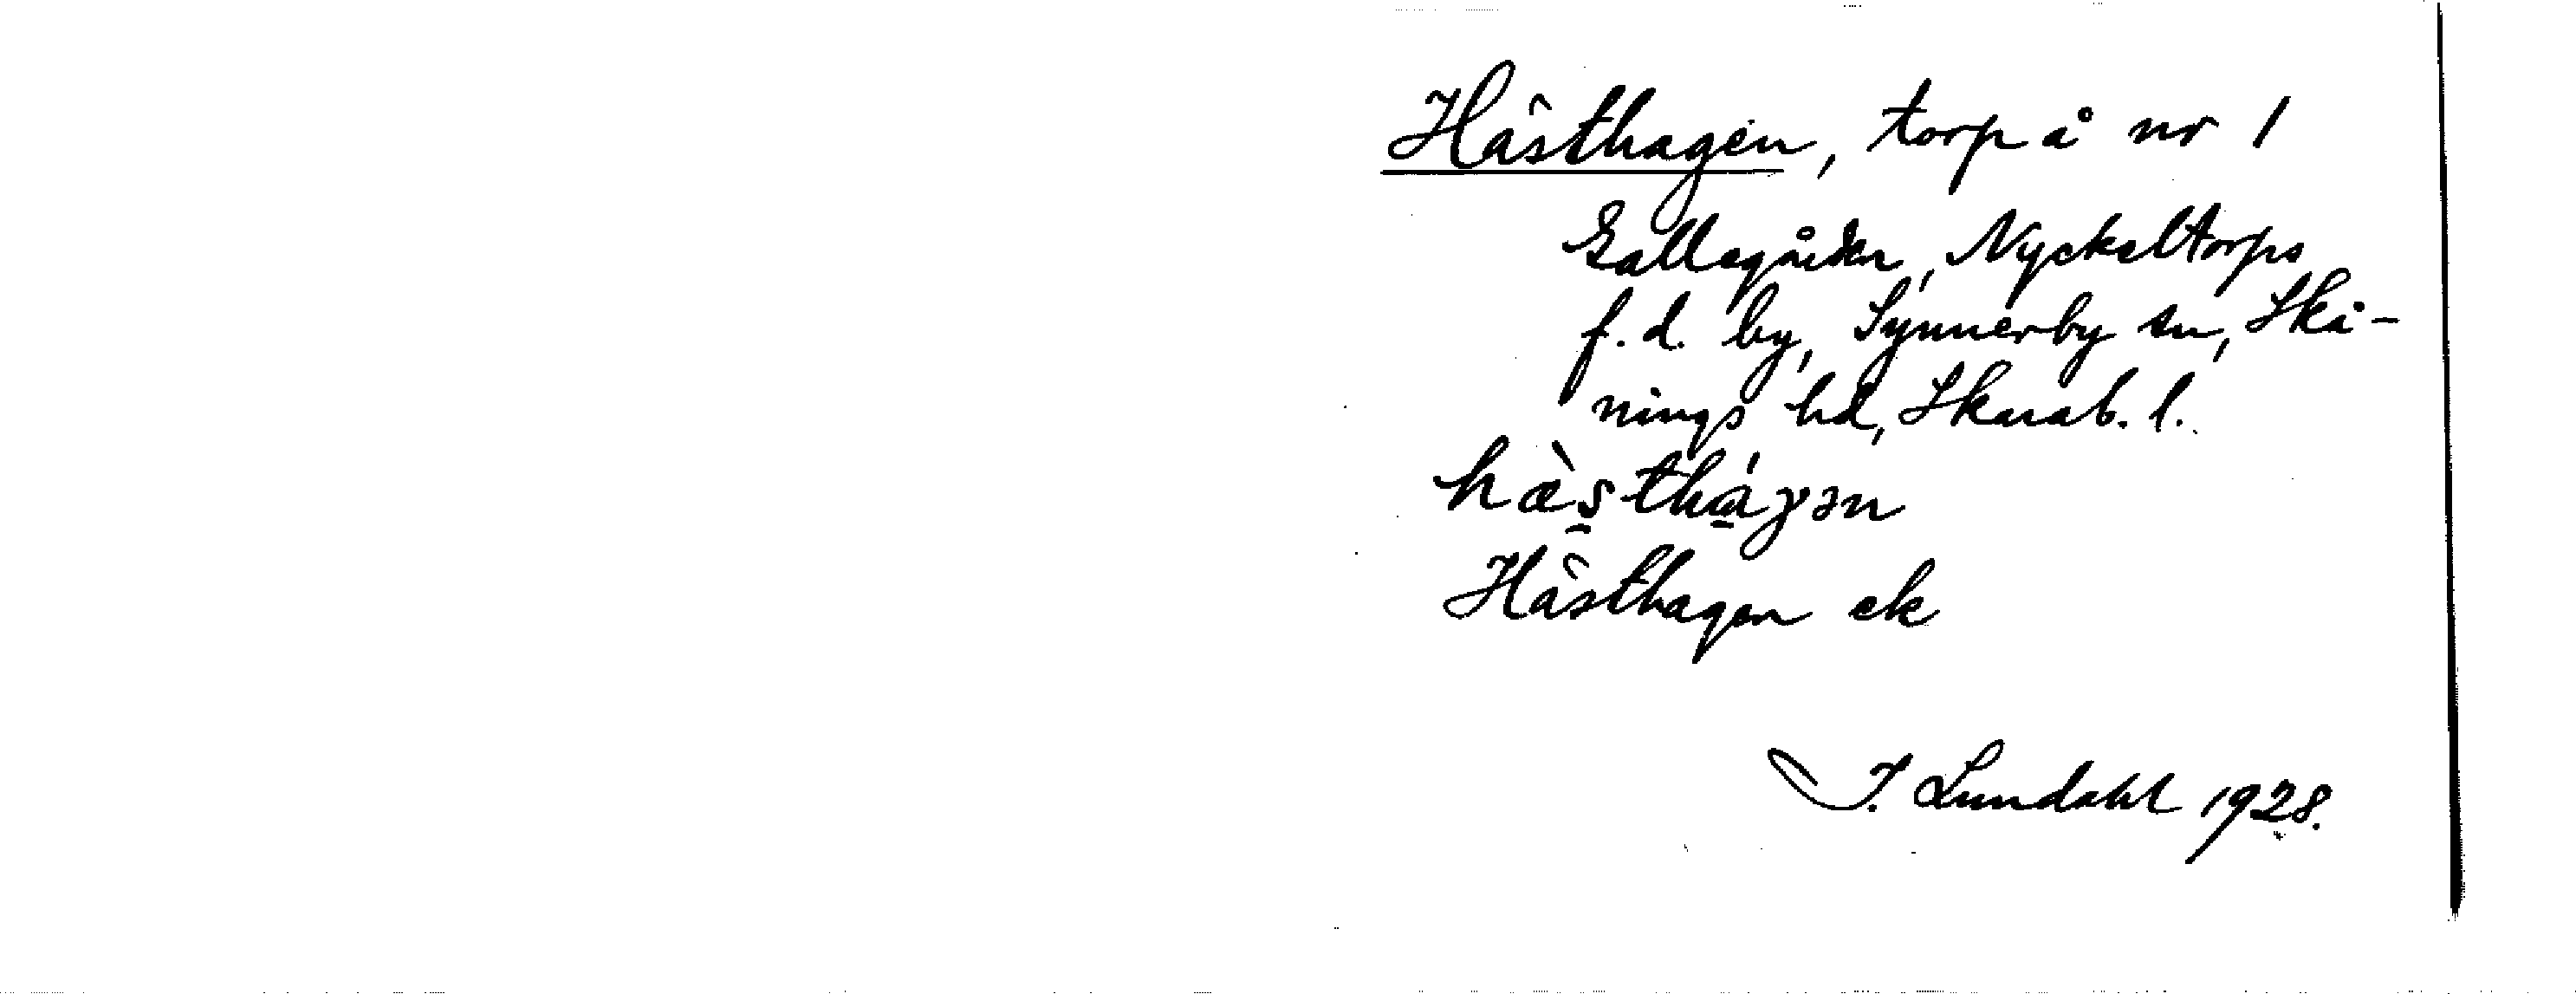 Hästhagen, torp å nr 1
Gallegården, Nyckeltorps
f.d. by, Synnerby sn, Skå-
nings hd, Skarab. l.
hæ̀stháɣən
Hästhagen ek
I. Lundahl 1928.